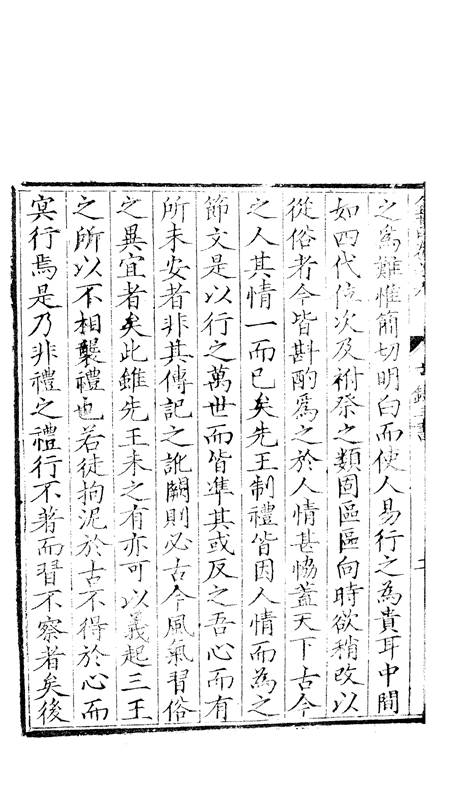 之為難惟簡切明白而使人易行之為貴耳中間
如四代位次及祔祭之類固區區向時欲稍改以
從俗者今皆斟酌為之於人情甚恊葢天下古今
之人其情一而已矣先王制禮皆因人情而為之
節文是以行之萬世而皆準其或反之吾心而有
所未安者非其傳記之訛闕則必古今風氣習俗
之異宜者矣此雖先王未之有亦可以義起三王
之所以不相襲禮也若徒拘泥於古不得於心而
㝠行焉是乃非禮之禮行不著而習不察者矣後